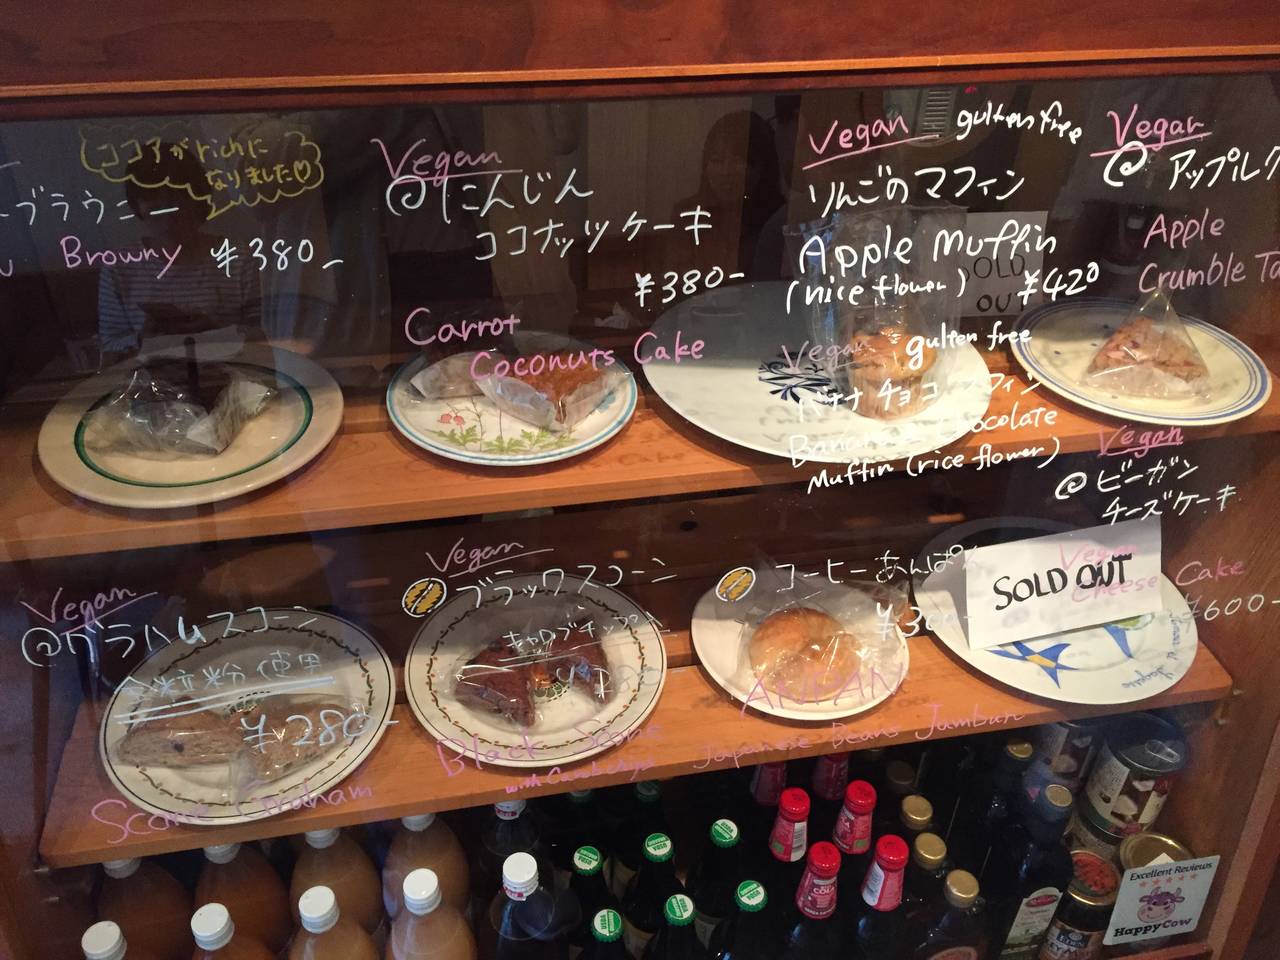 ココアがrichに
なりました♡
ブラウニー
Browny ¥380-
Vegan
@にんじん
ココナッツケーキ
¥380-
Carrot
Coconuts Cake
Vegan gulten free
りんごのマフィン
Apple Muffin
(rice flower) ¥420
SOLD
OU
Vegan gulten free
バナナチョコマフィン
Banana Chocolate
Muffin (rice flower)
Vegan
@アップルク
Apple
Crumble Ta
Vegan
@グラハムスコーン
全粒粉使用
¥280-
Scone Graham
Vegan
ブラックスコーン
キャロブチップ入
Black Scone
with Carobchips
コーヒーあんぱん
¥300-
ANPAN
Japanese Beans Jambun
Vegan
@ビーガン
チーズケーキ
Vegan
Cheese Cake
¥600-
SOLD OUT
Excellent Reviews
HappyCow